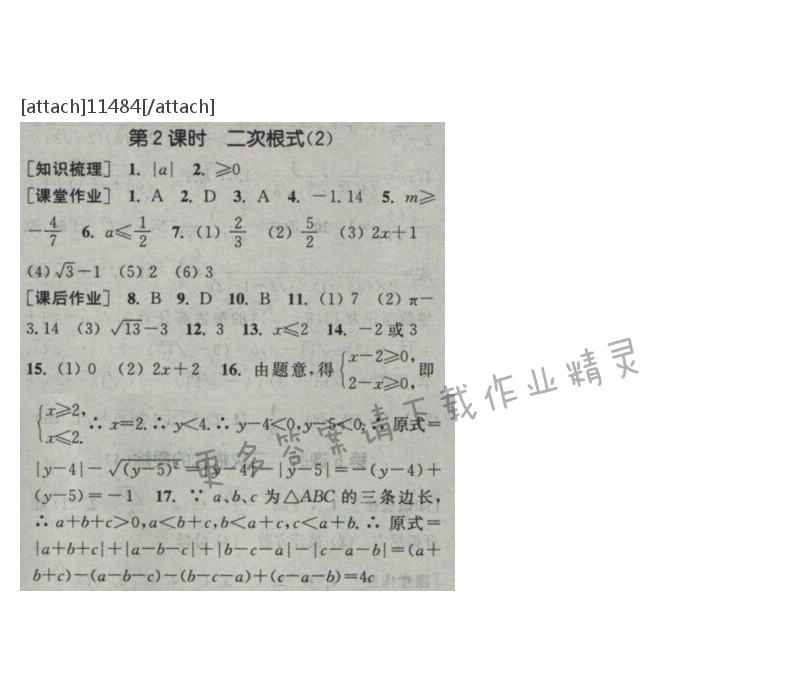 [attach]11484[/attach]
第2课时 二次根式(2)
[知识梳理] 1. |a| 2. ≥0
[课堂作业] 1. A 2. D 3. A 4. －1.14 5. m≥
－4/7 6. a≤1/2 7. (1) 2/3 (2) 5/2 (3) 2x＋1
(4) √3－1 (5) 2 (6) 3
[课后作业] 8. B 9. D 10. B 11. (1) 7 (2) π－
3.14 (3) √13－3 12. 3 13. x≤2 14. －2或3
15. (1) 0 (2) 2x＋2 16. 由题意,得{x－2≥0, 2－x≥0, 即
{x≥2, x≤2. ∴ x＝2. ∴ y<4. ∴ y－4<0, y－5<0. ∴ 原式＝
|y－4|－√(y－5)²＝|y－4|－|y－5|＝－(y－4)＋
(y－5)＝－1 17. ∵ a、b、c为△ABC的三条边长,
∴ a＋b＋c>0,a<b＋c,b<a＋c,c<a＋b. ∴ 原式＝
|a＋b＋c|＋|a－b－c|＋|b－c－a|－|c－a－b|＝(a＋
b＋c)－(a－b－c)－(b－c－a)＋(c－a－b)＝4c
更多答案请下载作业精灵